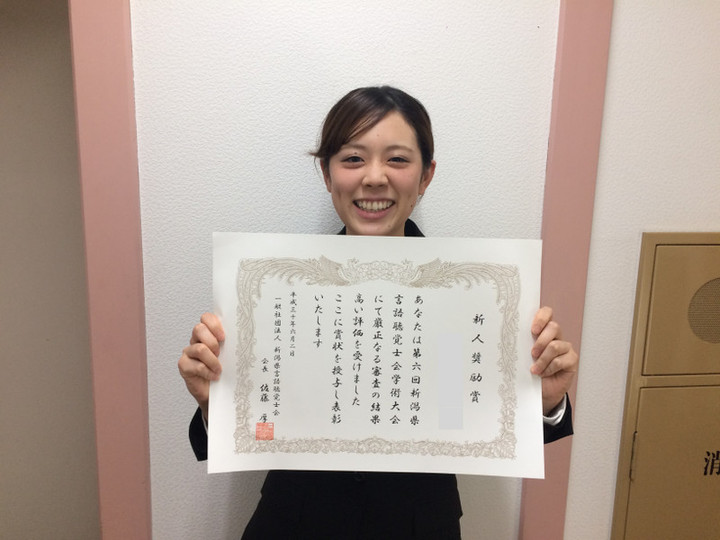 新人奨励賞
あなたは第六回新潟県
言語聴覚士会学術大会
にて厳正なる審査の結果
高い評価を受けました
ここに賞状を授与し表彰
いたします
平成三十年六月二日
一般社団法人 新潟県言語聴覚士会
会長 佐藤 厚
消